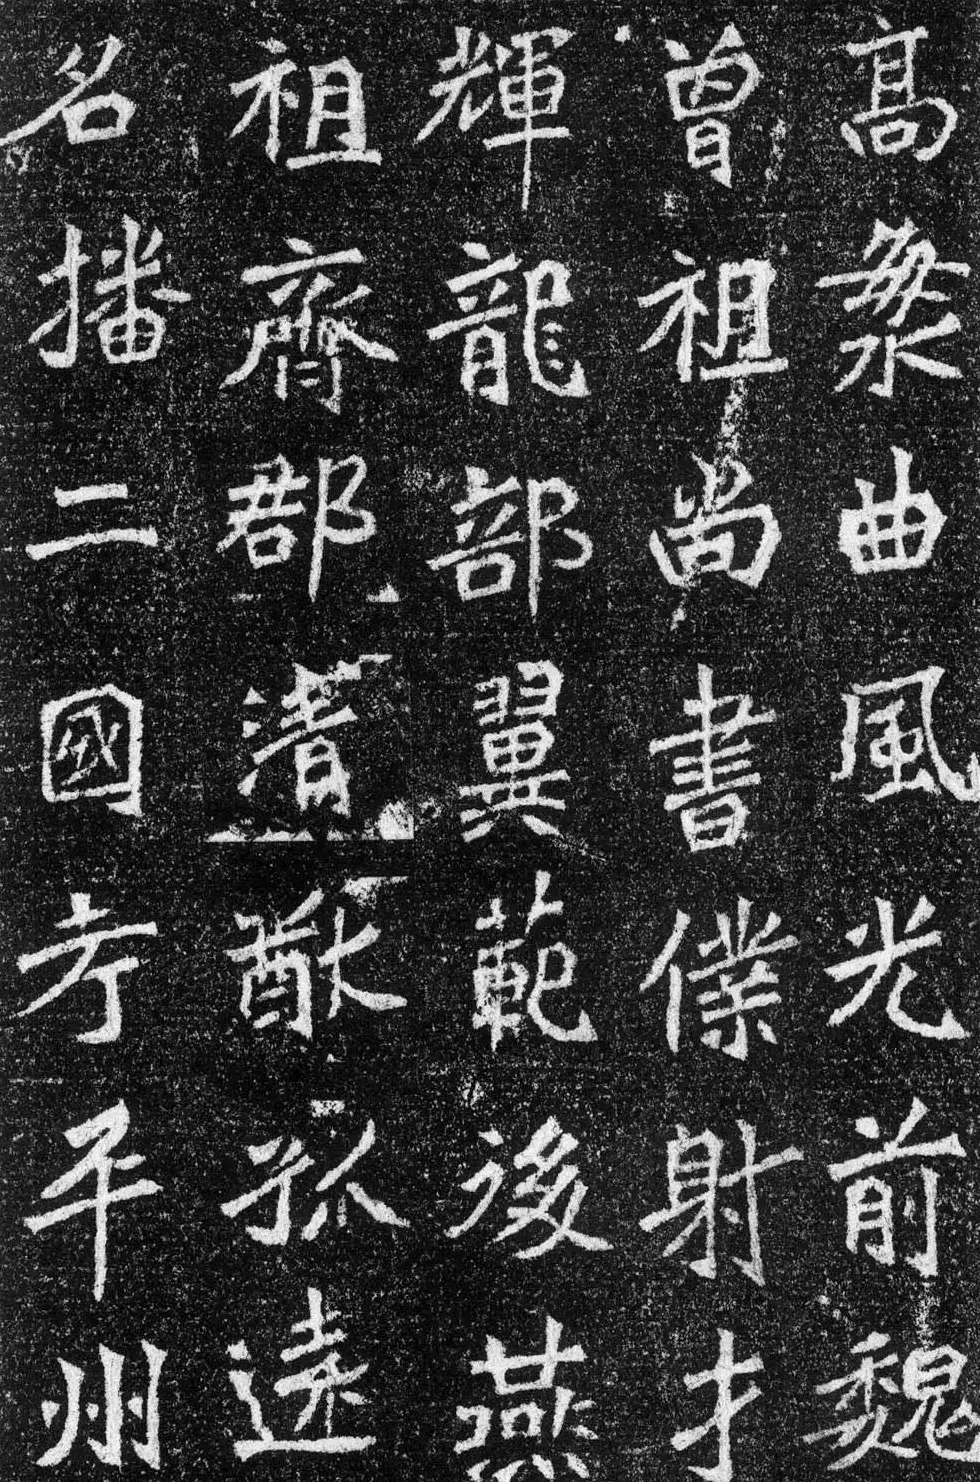 髙曲風光前魏
曾祖尚書僕射才
輝龍部翼範後燕
祖齊郡清猷孤遠
名播二國考平州